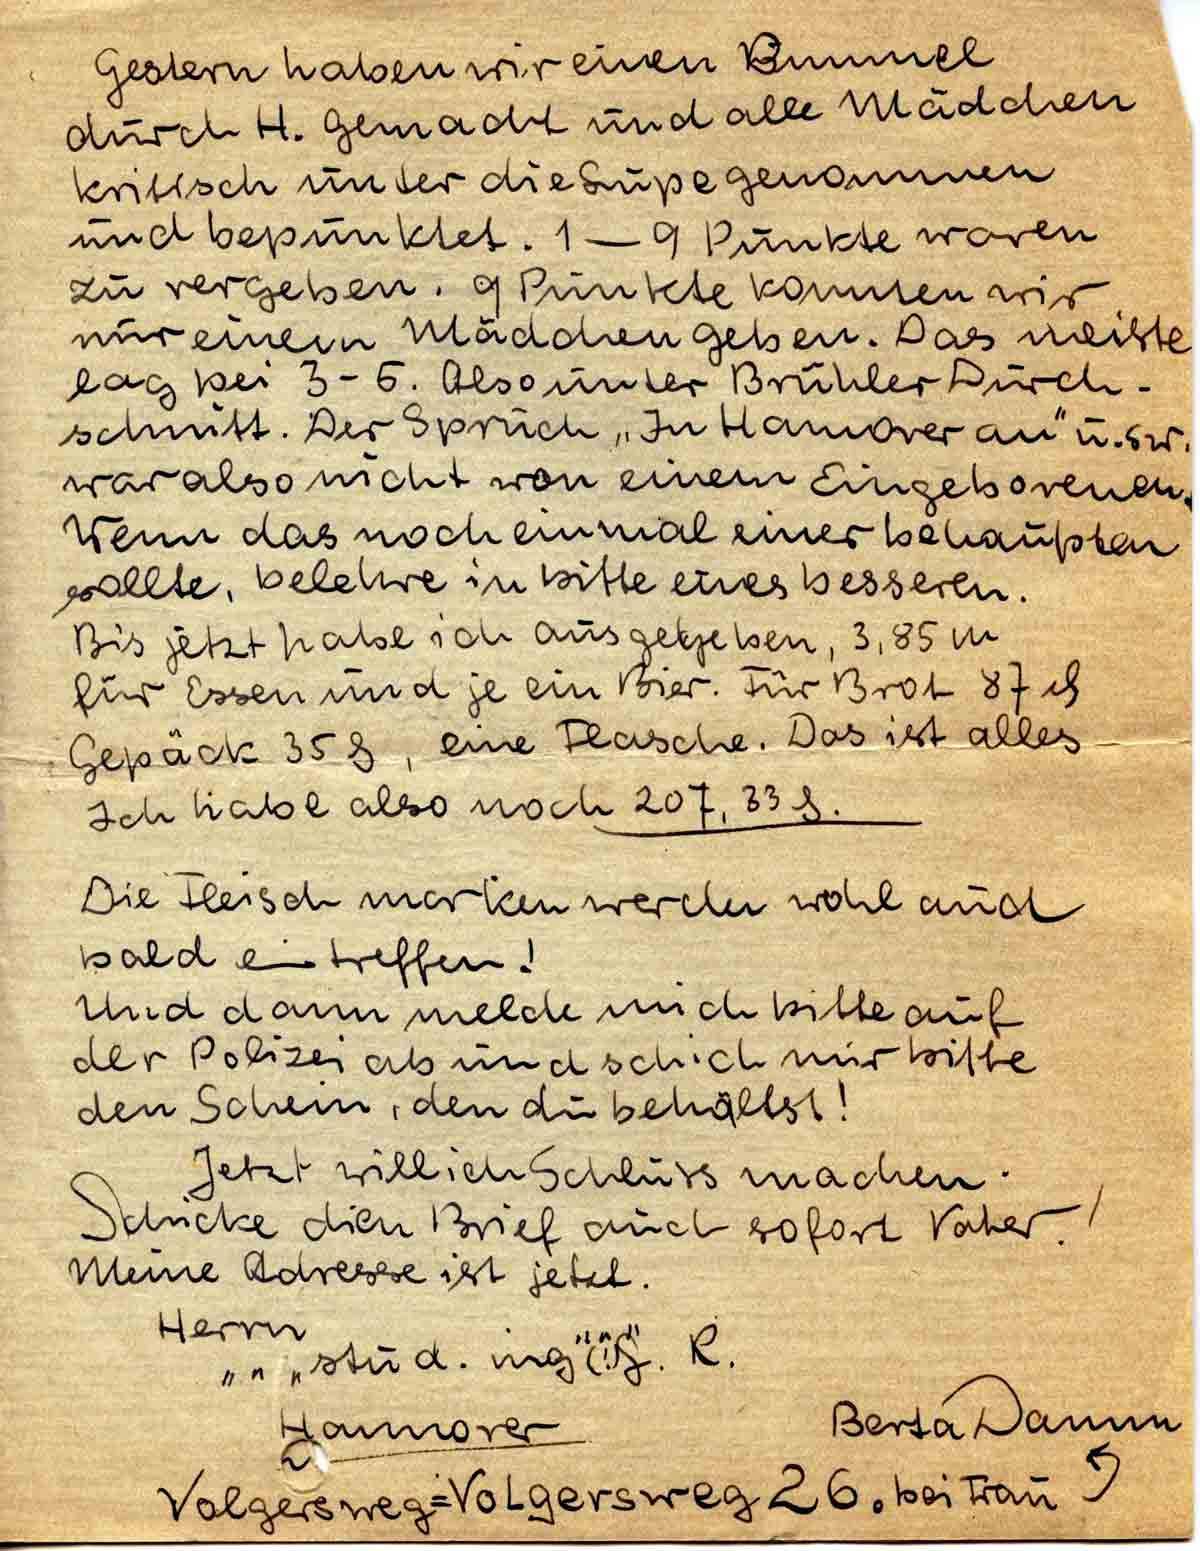 Gestern haben wir einen Bummel
durch H. gemacht und alle Mädchen
kritisch unter die Lupe genommen
und bepunktet. 1 – 9 Punkte waren
zu vergeben. 9 Punkte konnten wir
nur einem Mädchen geben. Das meiste
lag bei 3 – 6. Also unter Brühler Durch-
schnitt. Der Spruch „In Hannover an" u.s.w.
war also nicht von einem Eingeborenen.
Wenn das noch einmal einer behaupten
sollte, belehre in bitte eines besseren.
Bis jetzt habe ich ausgegeben, 3,85 M
für Essen und je ein Bier. Für Brot 87 ₰
Gepäck 35 ₰, eine Flasche. Das ist alles
Ich habe also noch 207,33 ₰.
Die Fleisch marken werden wohl auch
bald eintreffen!
Und dann melde mich bitte auf
der Polizei ab und schick mir bitte
den Schein, den du behältst!
Jetzt will ich Schluss machen.
Schicke dien Brief auch sofort Vater!
Meine Adresse ist jetzt.
Herrn
„ „ „stud. ing" R.
Hannover Berta Damm
Volgersweg = Volgersweg 26. bei Frau